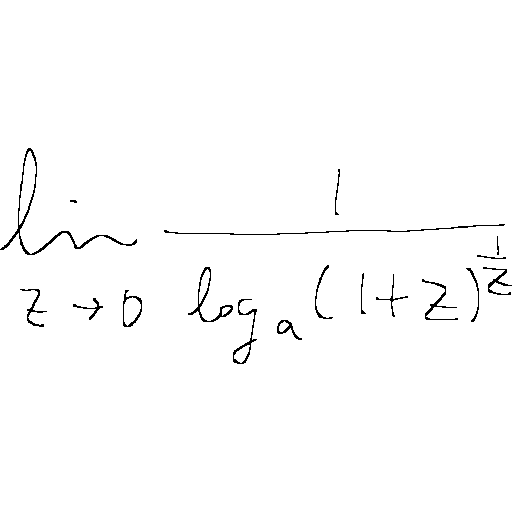 \lim_{z \to 0} \frac{1}{\log_a (1+z)^{\frac{1}{z}}}